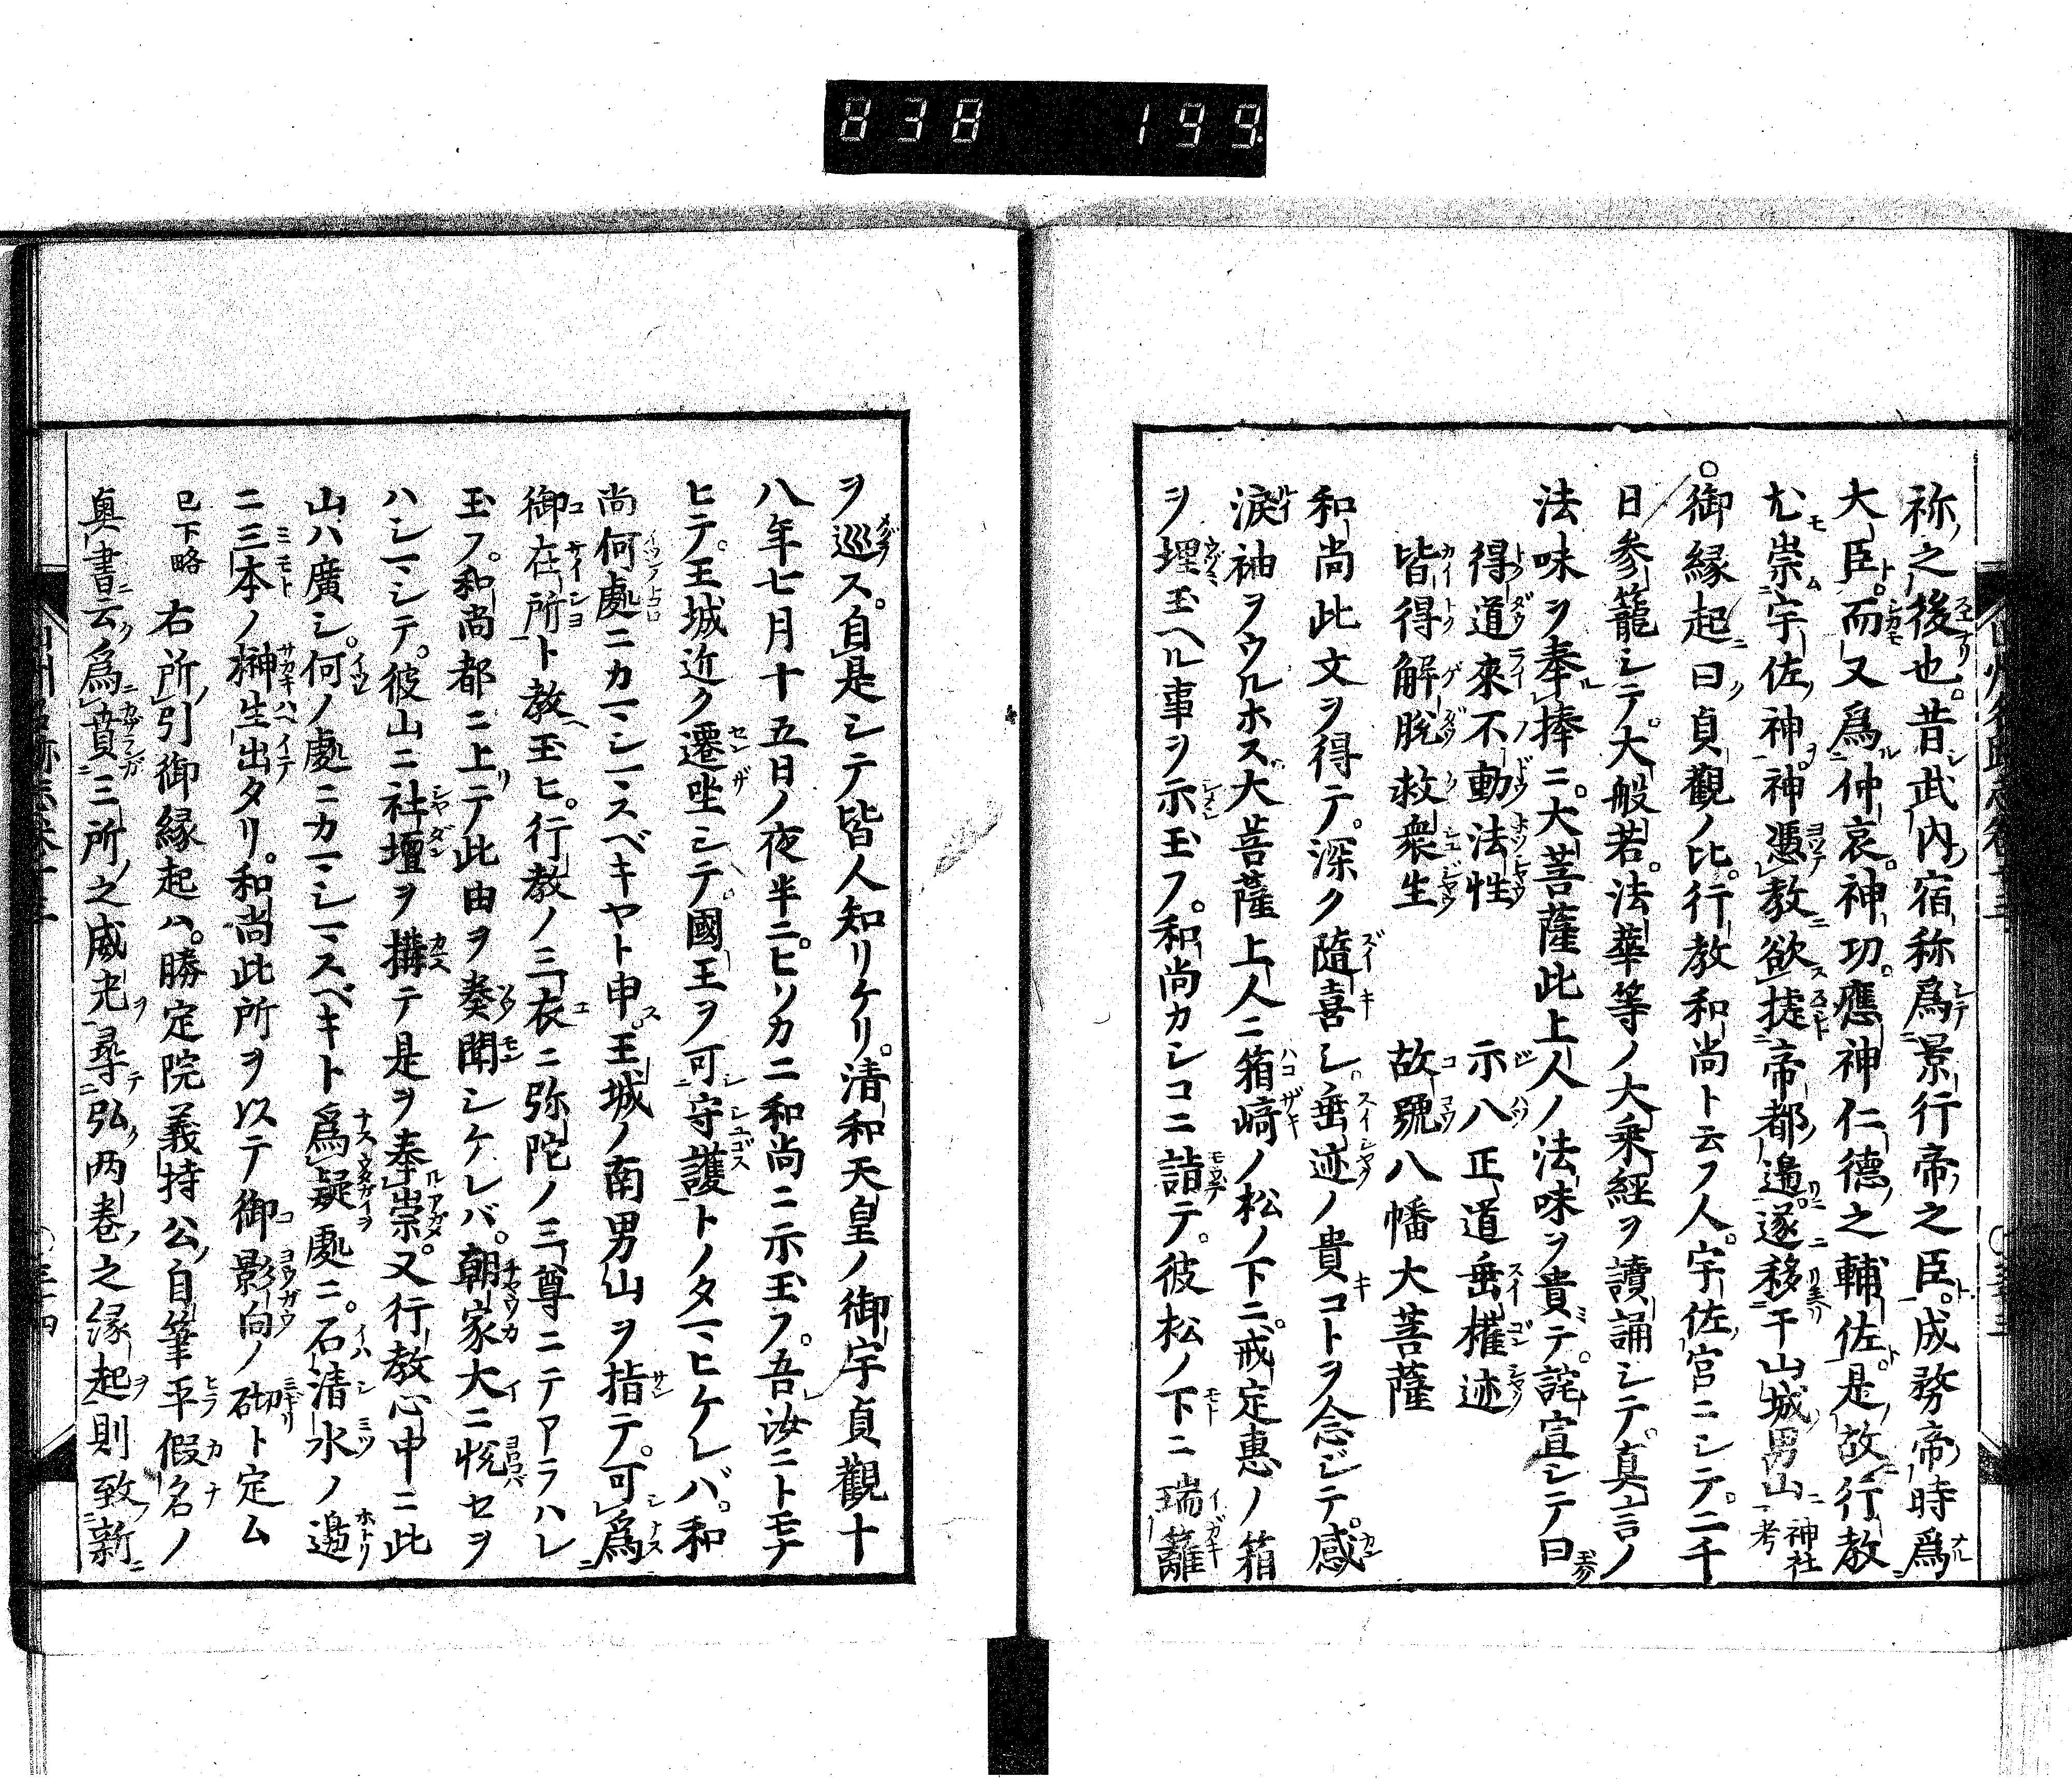 838 199
祢之後也。昔武内宿称爲景行帝之臣。成務帝時爲
大臣。而又爲仲哀。神功。應神仁德之輔佐。是故行教
尤崇宇佐神。神憑教欲捷帝都邉。遂移于山城男山神社考
○御縁起曰貞觀ノ比。行教和尚ト云フ人。宇佐宮ニシテ。二千
日参籠シテ。大般若。法華等ノ大乘経ヲ讀誦シテ。真言ノ
法味ヲ奉捧ニ。大菩薩此上人ノ法味ヲ貴デ。詫宣シテ曰
得道來不動法性 示八正道垂權迹
皆得解脫救衆生 故號八幡大菩薩
和尚此文ヲ得テ。深ク隨喜シ。垂迹ノ貴コトヲ念ジテ。感
淚袖ヲウルホス。大菩薩上人ニ箱﨑ノ松ノ下ニ。戒定惠ノ箱
ヲ埋玉ヘル事ヲ示玉フ。和尚カシコニ詣テ。彼松ノ下ニ瑞籬
ヲ巡ス。自是シテ皆人知リケリ。清和天皇ノ御宇貞觀十
八年七月十五日ノ夜半ニ。ヒソカニ和尚ニ示玉フ。吾汝ニトモナ
ヒテ。王城近ク遷坐シテ。國王ヲ可守護トノタマヒケレバ。和
尚何處ニカマシマスベキヤト申。王城ノ南男山ヲ指テ。可爲
御在所ト教玉ヒ。行教ノ三衣ニ弥陀ノ三尊ニテアラハレ
玉フ。和尚都ニ上テ此由ヲ奏聞シケレバ。朝家大ニ悅セヲ
ハシマシテ。彼山ニ社壇ヲ搆テ是ヲ奉崇。又行教心中ニ此
山ハ廣シ。何ノ處ニカマシマスベキト爲疑處ニ。石清水ノ邉
ニ三本ノ榊生出タリ。和尚此所ヲ以テ御影向ノ砌ト定ム
已下略 右所引御縁起ハ。勝定院義持公自筆平假名ノ
奥書云爲賁三所之威光尋弘两巻之縁起則致新